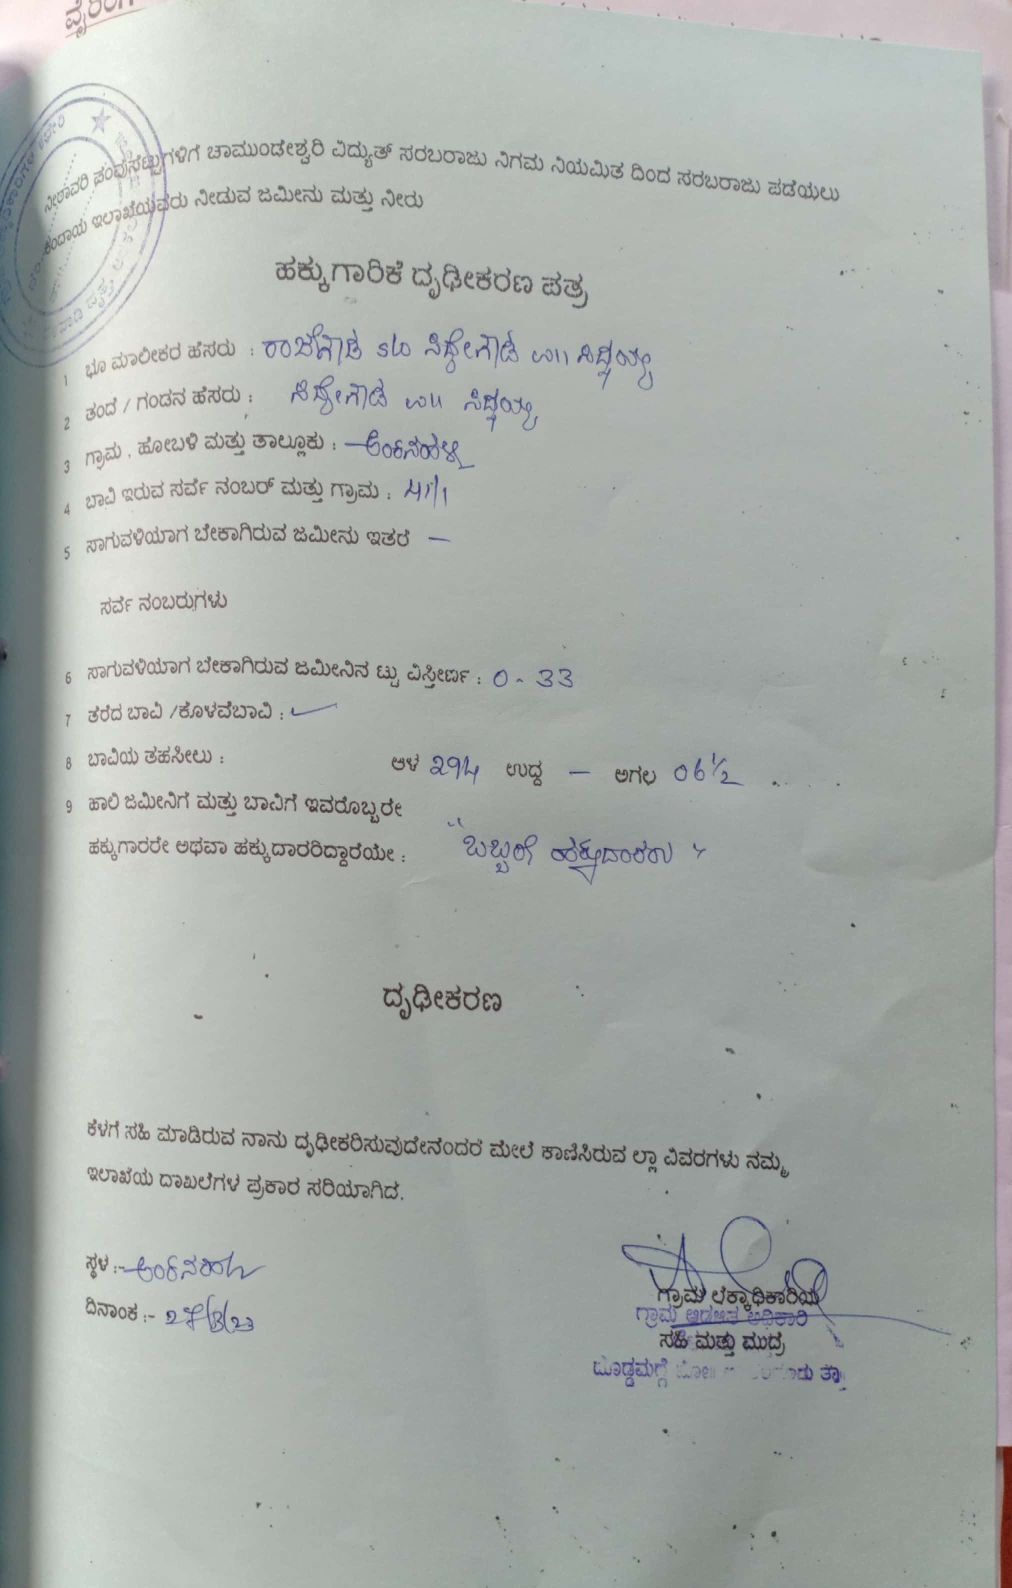 ನೀರಾವರಿ ಪಂಪುಸೆಟ್ಟುಗಳಿಗೆ ಚಾಮುಂಡೇಶ್ವರಿ ವಿದ್ಯುತ್ ಸರಬರಾಜು ನಿಗಮ ನಿಯಮಿತ ದಿಂದ ಸರಬರಾಜು ಪಡೆಯಲು
ಕಂದಾಯ ಇಲಾಖೆಯವರು ನೀಡುವ ಜಮೀನು ಮತ್ತು ನೀರು
ಹಕ್ಕುಗಾರಿಕೆ ದೃಢೀಕರಣ ಪತ್ರ
1 ಭೂ ಮಾಲೀಕರ ಹೆಸರು : ರಾಜೇಗೌಡ S/o ಸಿದ್ದೇಗೌಡ
2 ತಂದೆ / ಗಂಡನ ಹೆಸರು : ಸಿದ್ದೇಗೌಡ
3 ಗ್ರಾಮ , ಹೋಬಳಿ ಮತ್ತು ತಾಲ್ಲೂಕು :
4 ಬಾವಿ ಇರುವ ಸರ್ವೆ ನಂಬರ್ ಮತ್ತು ಗ್ರಾಮ :
5 ಸಾಗುವಳಿಯಾಗ ಬೇಕಾಗಿರುವ ಜಮೀನು ಇತರೆ —
ಸರ್ವೆ ನಂಬರುಗಳು
6 ಸಾಗುವಳಿಯಾಗ ಬೇಕಾಗಿರುವ ಜಮೀನಿನ ಟ್ಟು ವಿಸ್ತೀರ್ಣ : 0-33
7 ತೆರೆದ ಬಾವಿ /ಕೊಳವೆಬಾವಿ :
8 ಬಾವಿಯ ತಹಸೀಲು : ಆಳ 294 ಉದ್ದ — ಅಗಲ 06 1/2
9 ಹಾಲಿ ಜಮೀನಿಗೆ ಮತ್ತು ಬಾವಿಗೆ ಇವರೊಬ್ಬರೇ
ಹಕ್ಕುಗಾರರೇ ಅಥವಾ ಹಕ್ಕುದಾರರಿದ್ದಾರೆಯೇ : "ಒಬ್ಬರೇ ಹಕ್ಕುದಾರರು"
ದೃಢೀಕರಣ
ಕೆಳಗೆ ಸಹಿ ಮಾಡಿರುವ ನಾನು ದೃಢೀಕರಿಸುವುದೇನೆಂದರೆ ಮೇಲೆ ಕಾಣಿಸಿರುವ ಲ್ಲಾ ವಿವರಗಳು ನಮ್ಮ
ಇಲಾಖೆಯ ದಾಖಲೆಗಳ ಪ್ರಕಾರ ಸರಿಯಾಗಿದೆ.
ಸ್ಥಳ :-
ದಿನಾಂಕ :- 27/3/23
ಗ್ರಾಮ ಲೆಕ್ಕಾಧಿಕಾರಿಯ
ಗ್ರಾಮ ಆಡಳಿತ ಅಧಿಕಾರಿ
ಸಹಿ ಮತ್ತು ಮುದ್ರೆ
ದೊಡ್ಡಮಗ್ಗೆ